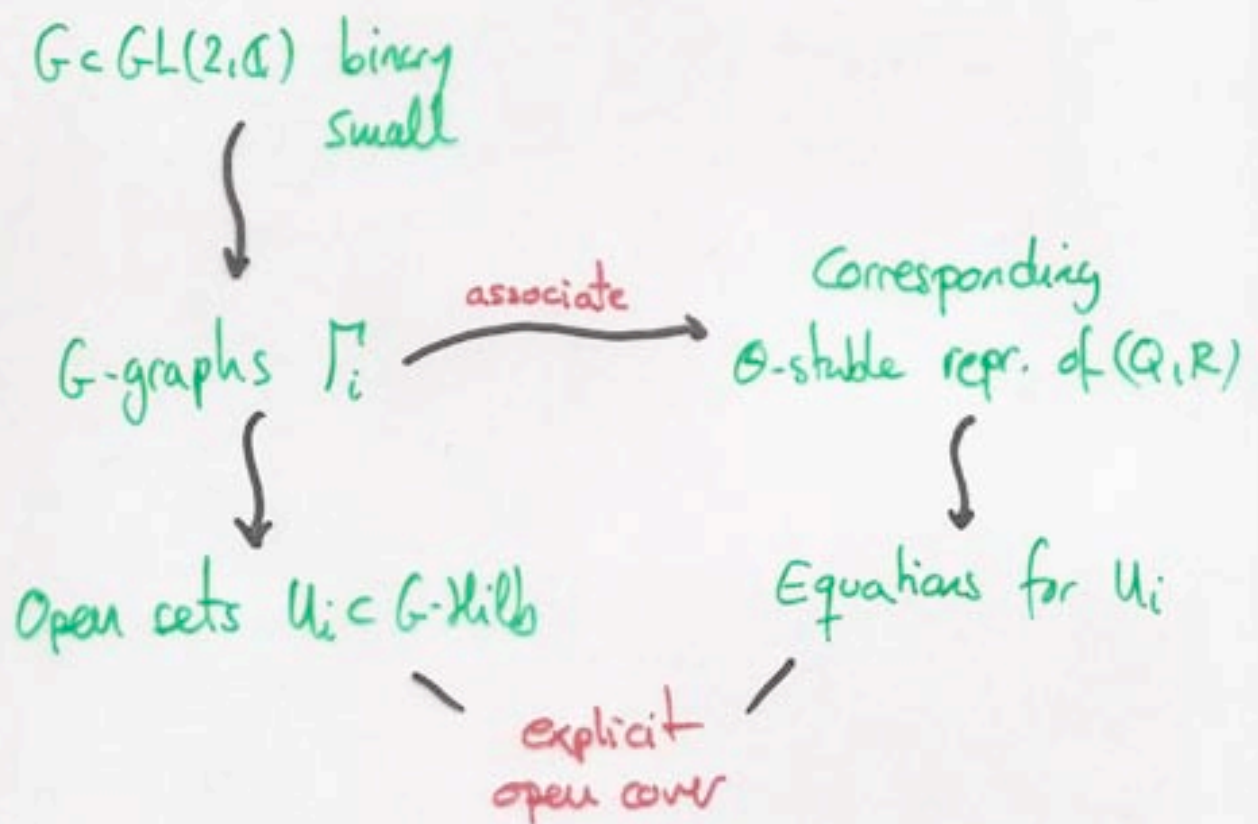 G ⊂ GL(2,ℂ) binary
small
associate
Corresponding
G-graphs Γi
θ-stable repr. of (Q,R)
Open sets Ui ⊂ G-Hilb
Equations for Ui
explicit
open cover